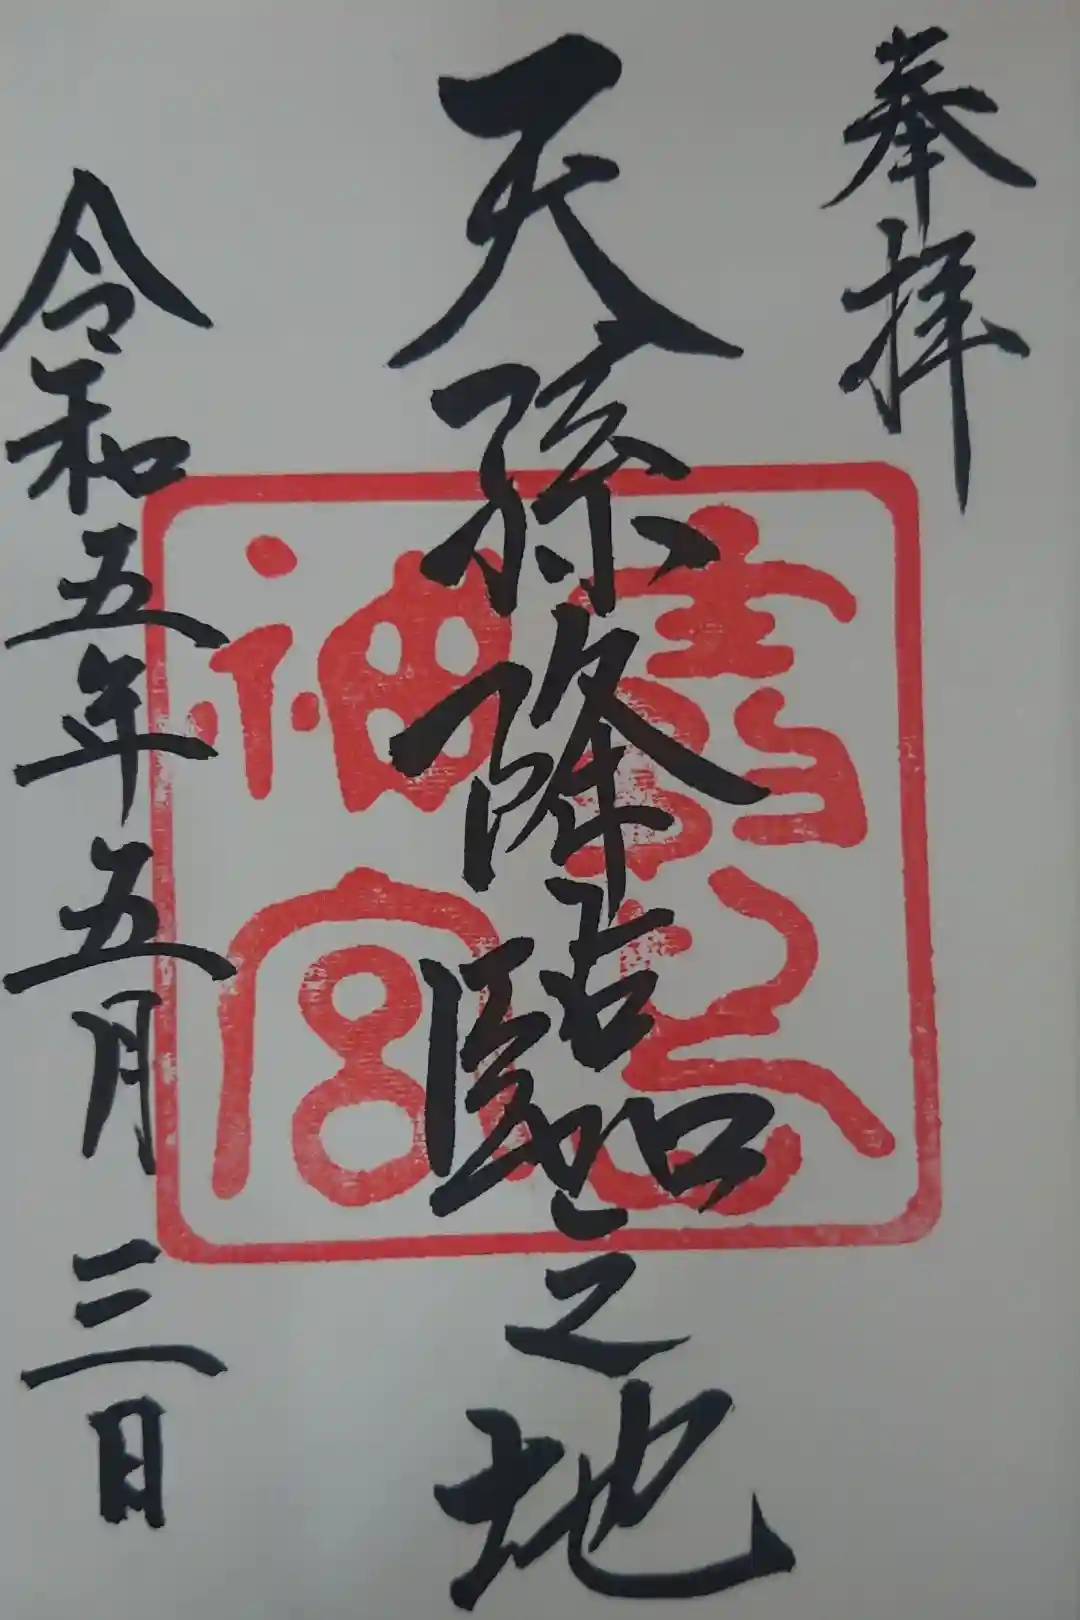 奉拝
天孫降臨之地
霧島
神宮
令和五年五月三日